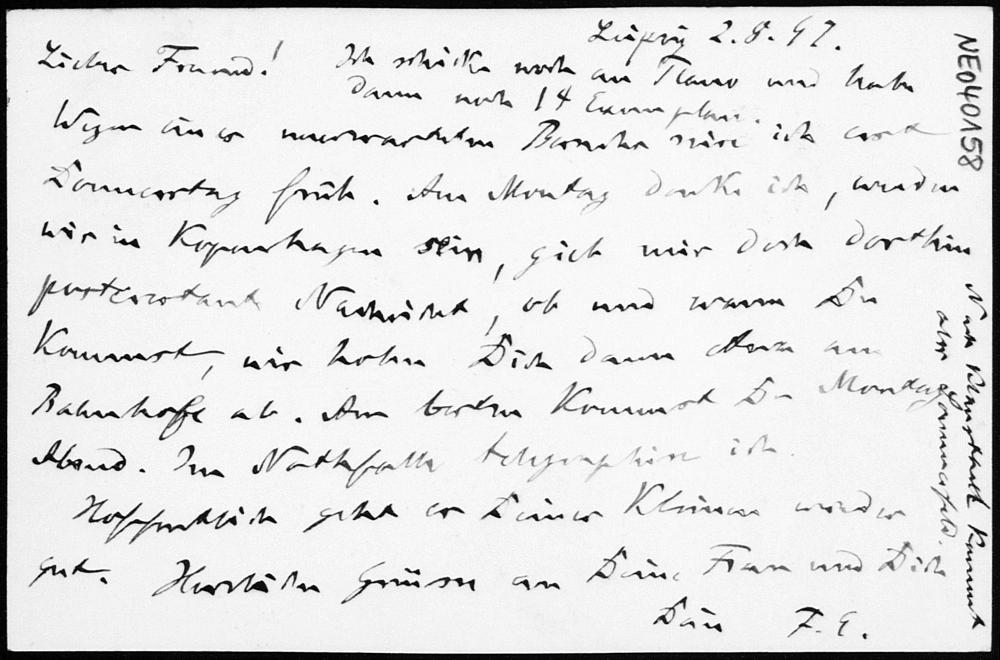 Leipzig 2.8.97.
Lieber Freund! Ich schicke noch an Thano und habe
dann noch 14 Exemplare.
Wegen einer unerwarteten Besuches reise ich erst
Donnerstag früh. Am Montag denke ich, werden
wir in Kopenhagen sein, gieb mir doch dorthin
postrestante Nachricht, ob und wann Du
kommst, wir holen Dich dann am
Bahnhofe ab. Am besten kommst Du Montag
Abend. Im Nothfalle telegraphire ich.
Hoffentlich geht es Deiner Kleinen wieder
gut. Herzliche Grüsse an Deine Frau und Dich
Dein F. E.
Nach Klausthal kommt
aber Sommerfeld.
NE040158